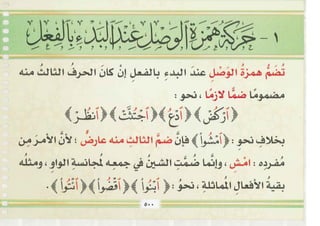 ١ - حَرَكَةُ هَمْزَةِ الْوَصْلِ عِنْدَ الْبَدْءِ بِالْفِعْلِ
تُضَمُّ همزةُ الوَصْلِ عندَ البدءِ بالفعلِ إنْ كانَ الحرفُ الثالثُ منه
مضمومًا ضمًّا لازمًا ، نحو :
﴿ ٱرْكُضْ ﴾ ﴿ ٱدْعُ ﴾ ﴿ ٱجْتُثَّتْ ﴾ ﴿ ٱنظُرْ ﴾
بخلافِ نحو : ﴿ ٱمْشُوا۟ ﴾ فإنَّ ضمَّ الثالثِ منه عارضٌ ؛ لأنَّ الأمرَ مِنَ
مُفردِه : امْشِ ، وإنَّما ضُمَّتِ الشينُ في جمعِه لمُجانسةِ الواوِ ، ومثلُه
بقيةُ الأفعالِ المُماثلةِ ، نحوُ : ﴿ ٱبْنُوا۟ ﴾ ﴿ ٱقْضُوٓا۟ ﴾ ﴿ ٱئْتُوا۟ ﴾ .
٥٠٠